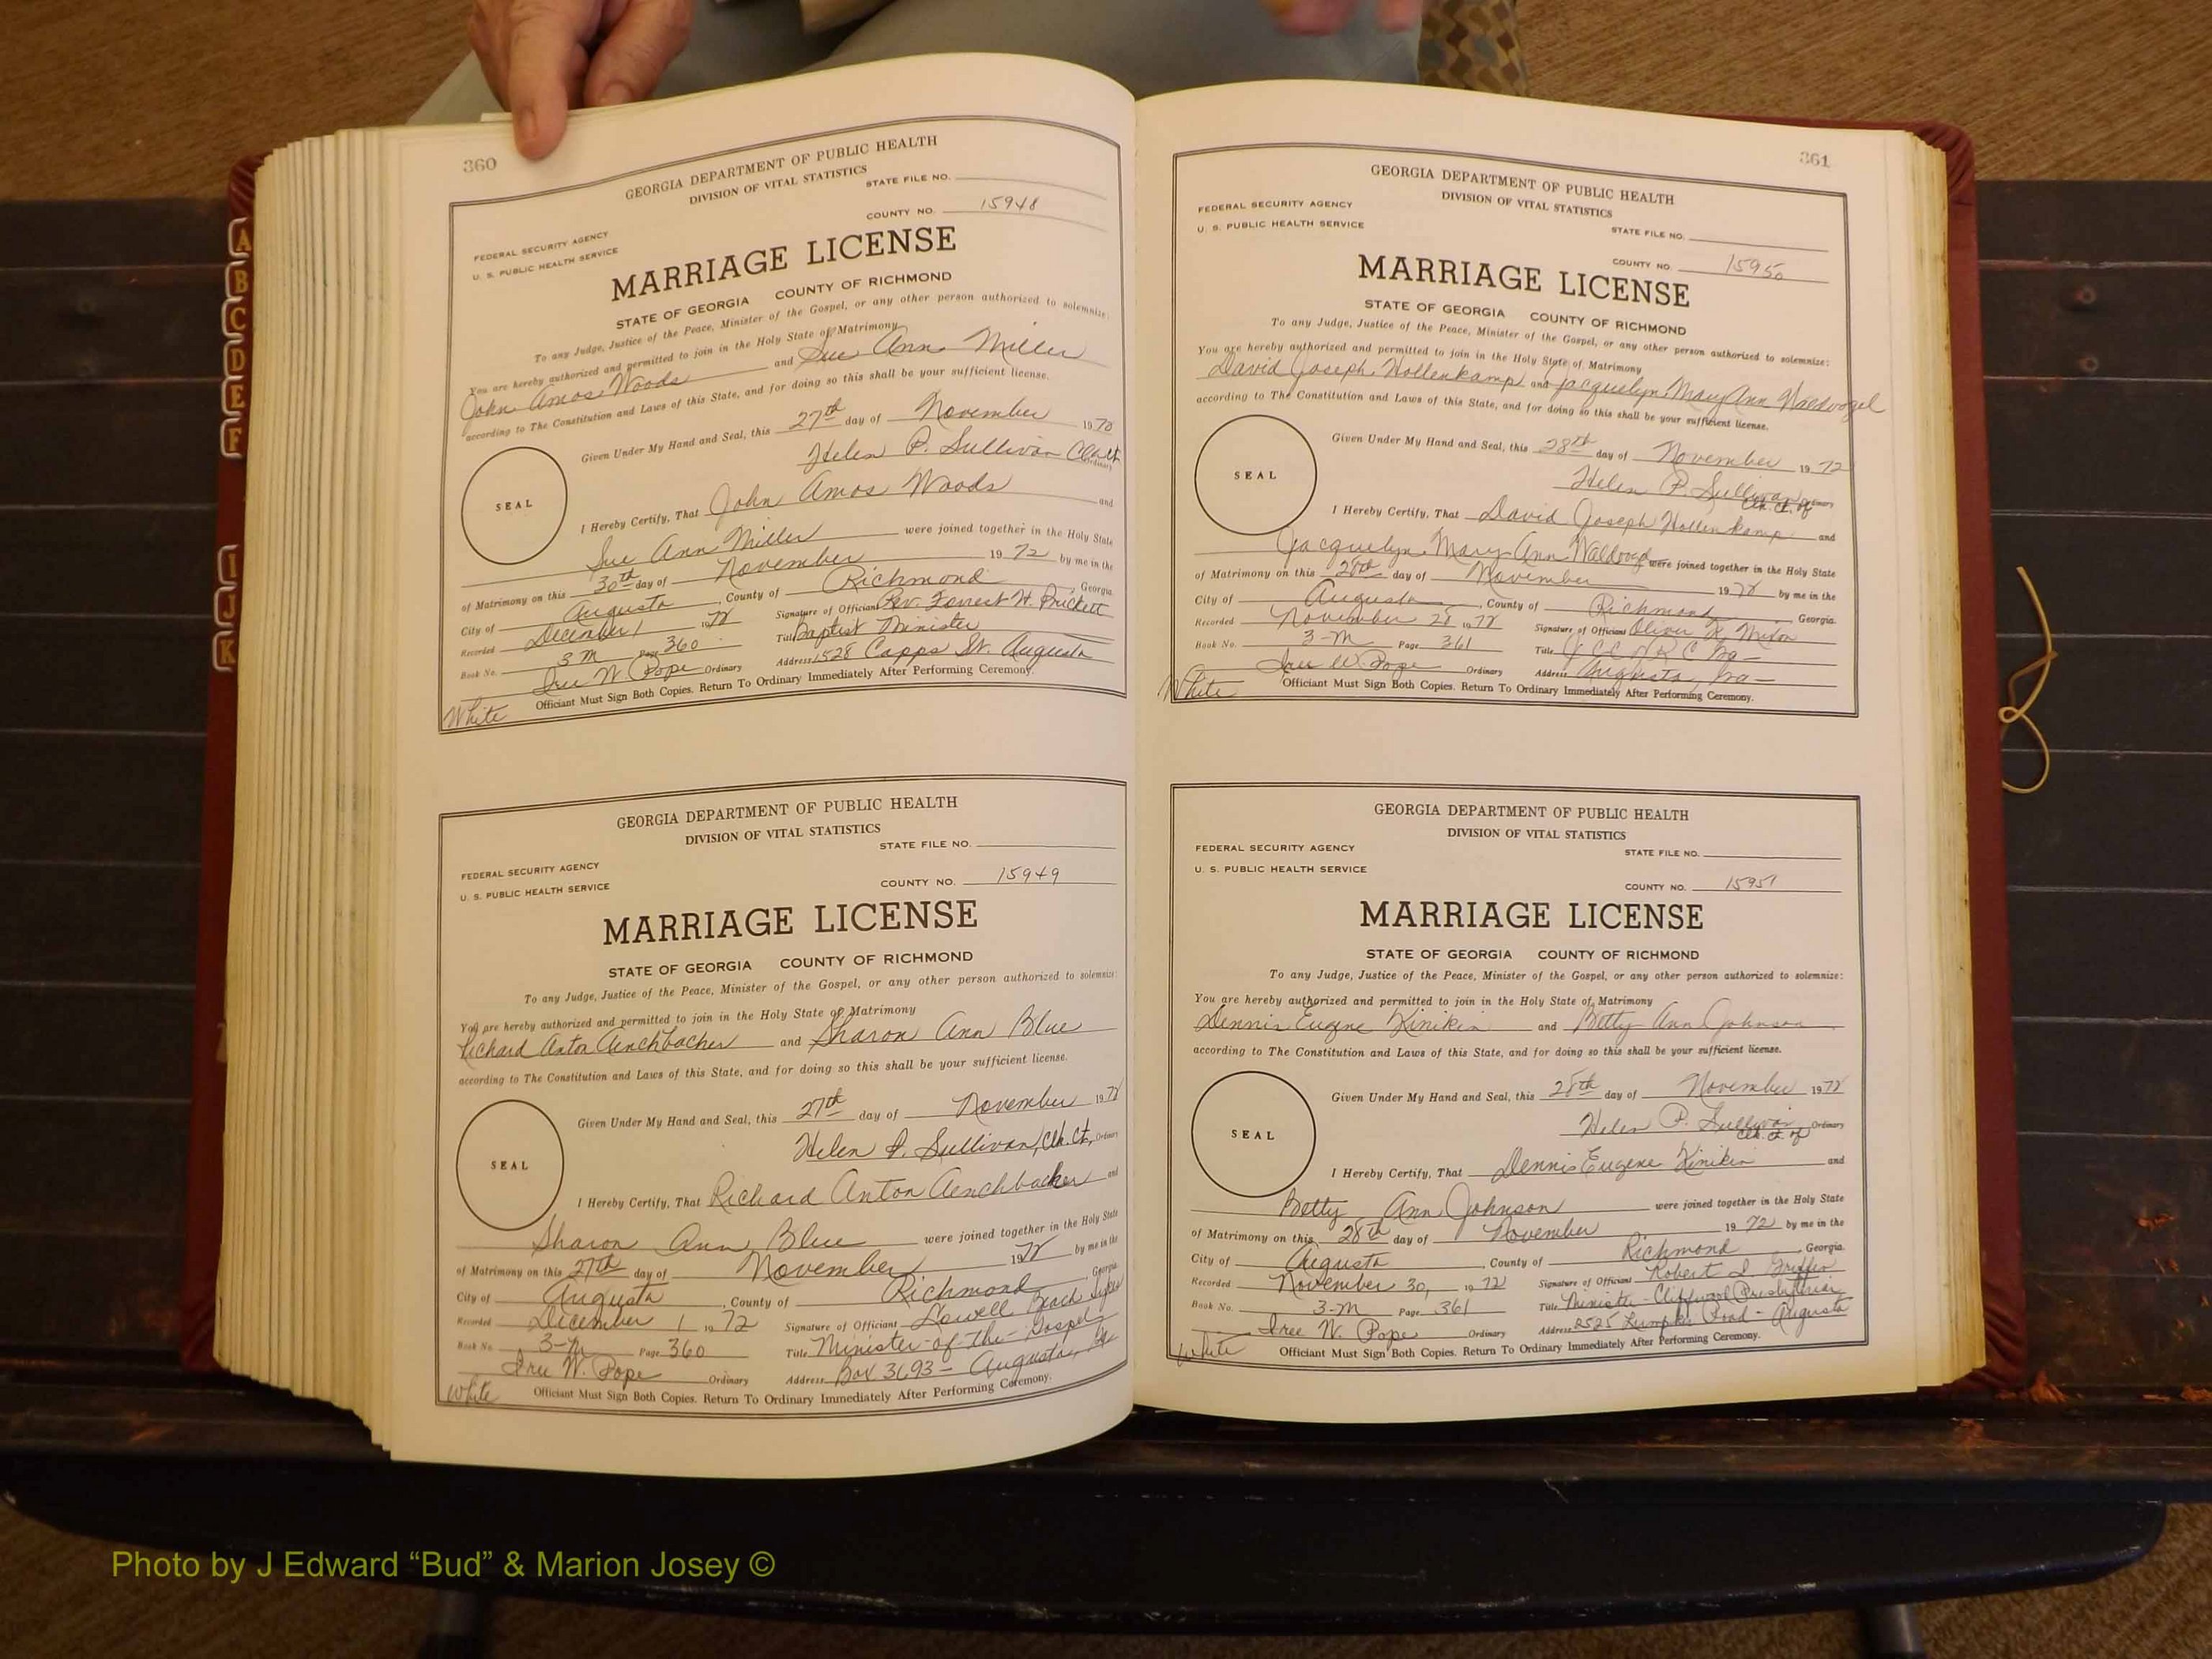 A
B
C
D
E
F
I
J
K
360
GEORGIA DEPARTMENT OF PUBLIC HEALTH
DIVISION OF VITAL STATISTICS
STATE FILE NO.
COUNTY NO. 15948
FEDERAL SECURITY AGENCY
U. S. PUBLIC HEALTH SERVICE
MARRIAGE LICENSE
STATE OF GEORGIA COUNTY OF RICHMOND
To any Judge, Justice of the Peace, Minister of the Gospel, or any other person authorized to solemnize:
You are hereby authorized and permitted to join in the Holy State of Matrimony
John Amos Woods and Sue Ann Miller
according to The Constitution and Laws of this State, and for doing so this shall be your sufficient license.
Given Under My Hand and Seal, this 27th day of November 1972
Helen P. Sullivan Ordinary
SEAL
I Hereby Certify, That John Amos Woods and
Sue Ann Miller were joined together in the Holy State
of Matrimony on this 30th day of November 1972 by me in the
City of Augusta, County of Richmond, Georgia.
Recorded December 1 1972 Signature of Official Rev. Forrest H. Prickett
Book No. 3 M Page 360 Title Baptist Minister
Iree W. Pope Ordinary Address 1528 Capps St. Augusta
White Officiant Must Sign Both Copies. Return To Ordinary Immediately After Performing Ceremony.
GEORGIA DEPARTMENT OF PUBLIC HEALTH
DIVISION OF VITAL STATISTICS
STATE FILE NO.
FEDERAL SECURITY AGENCY
U. S. PUBLIC HEALTH SERVICE
COUNTY NO. 15949
MARRIAGE LICENSE
STATE OF GEORGIA COUNTY OF RICHMOND
To any Judge, Justice of the Peace, Minister of the Gospel, or any other person authorized to solemnize:
You are hereby authorized and permitted to join in the Holy State of Matrimony
Richard Anton Aenchbacher and Sharon Ann Blue
according to The Constitution and Laws of this State, and for doing so this shall be your sufficient license.
Given Under My Hand and Seal, this 27th day of November 1972
Helen P. Sullivan, Clk. Ct., Ordinary
SEAL
I Hereby Certify, That Richard Anton Aenchbacker and
Sharon Ann Blue were joined together in the Holy State
of Matrimony on this 27th day of November 1972 by me in the
City of Augusta, County of Richmond, Georgia
Recorded December 1 1972 Signature of Official Lowell Beach
Book No. 3-M Page 360 Title Minister-of-the-Gospel
Iree W. Pope Ordinary Address Box 3693 - Augusta, Ga
White Officiant Must Sign Both Copies. Return To Ordinary Immediately After Performing Ceremony.
361
GEORGIA DEPARTMENT OF PUBLIC HEALTH
DIVISION OF VITAL STATISTICS
FEDERAL SECURITY AGENCY
U. S. PUBLIC HEALTH SERVICE
STATE FILE NO.
COUNTY NO. 15950
MARRIAGE LICENSE
STATE OF GEORGIA COUNTY OF RICHMOND
To any Judge, Justice of the Peace, Minister of the Gospel, or any other person authorized to solemnize:
You are hereby authorized and permitted to join in the Holy State of Matrimony
David Joseph Hollenkamp and Jacquelyn Mary Ann Waldvogel
according to The Constitution and Laws of this State, and for doing so this shall be your sufficient license.
Given Under My Hand and Seal, this 28th day of November 1972
Helen P. Sullivan Ordinary
Clk. Ct. of
SEAL
I Hereby Certify, That David Joseph Hollenkamp and
Jacquelyn Mary Ann were joined together in the Holy State
of Matrimony on this 28th day of November 1972 by me in the
City of Augusta, County of Richmond, Georgia.
Recorded November 28 1972 Signature of Official Oliver K. Mixon
Book No. 3-M Page 361 Title
Iree W. Pope Ordinary Address Augusta, Ga
White Officiant Must Sign Both Copies. Return To Ordinary Immediately After Performing Ceremony.
GEORGIA DEPARTMENT OF PUBLIC HEALTH
DIVISION OF VITAL STATISTICS
FEDERAL SECURITY AGENCY
U. S. PUBLIC HEALTH SERVICE
STATE FILE NO.
COUNTY NO. 15951
MARRIAGE LICENSE
STATE OF GEORGIA COUNTY OF RICHMOND
To any Judge, Justice of the Peace, Minister of the Gospel, or any other person authorized to solemnize:
You are hereby authorized and permitted to join in the Holy State of Matrimony
Dennis Eugene Kinikin and Betty Ann Johnson
according to The Constitution and Laws of this State, and for doing so this shall be your sufficient license.
Given Under My Hand and Seal, this 28th day of November 1972
Helen P. Sullivan Ordinary
Clk. Ct. of
SEAL
I Hereby Certify, That Dennis Eugene Kinikin and
Betty Ann Johnson were joined together in the Holy State
of Matrimony on this 28th day of November 1972 by me in the
City of Augusta, County of Richmond, Georgia.
Recorded November 30, 1972 Signature of Official Robert I. Griffin
Book No. 3-M Page 361 Title Minister - Cliffwood Presbyterian
Iree W. Pope Ordinary Address 2525 Lumpkin Road - Augusta
White Officiant Must Sign Both Copies. Return To Ordinary Immediately After Performing Ceremony.
Photo by J Edward “Bud” & Marion Josey ©